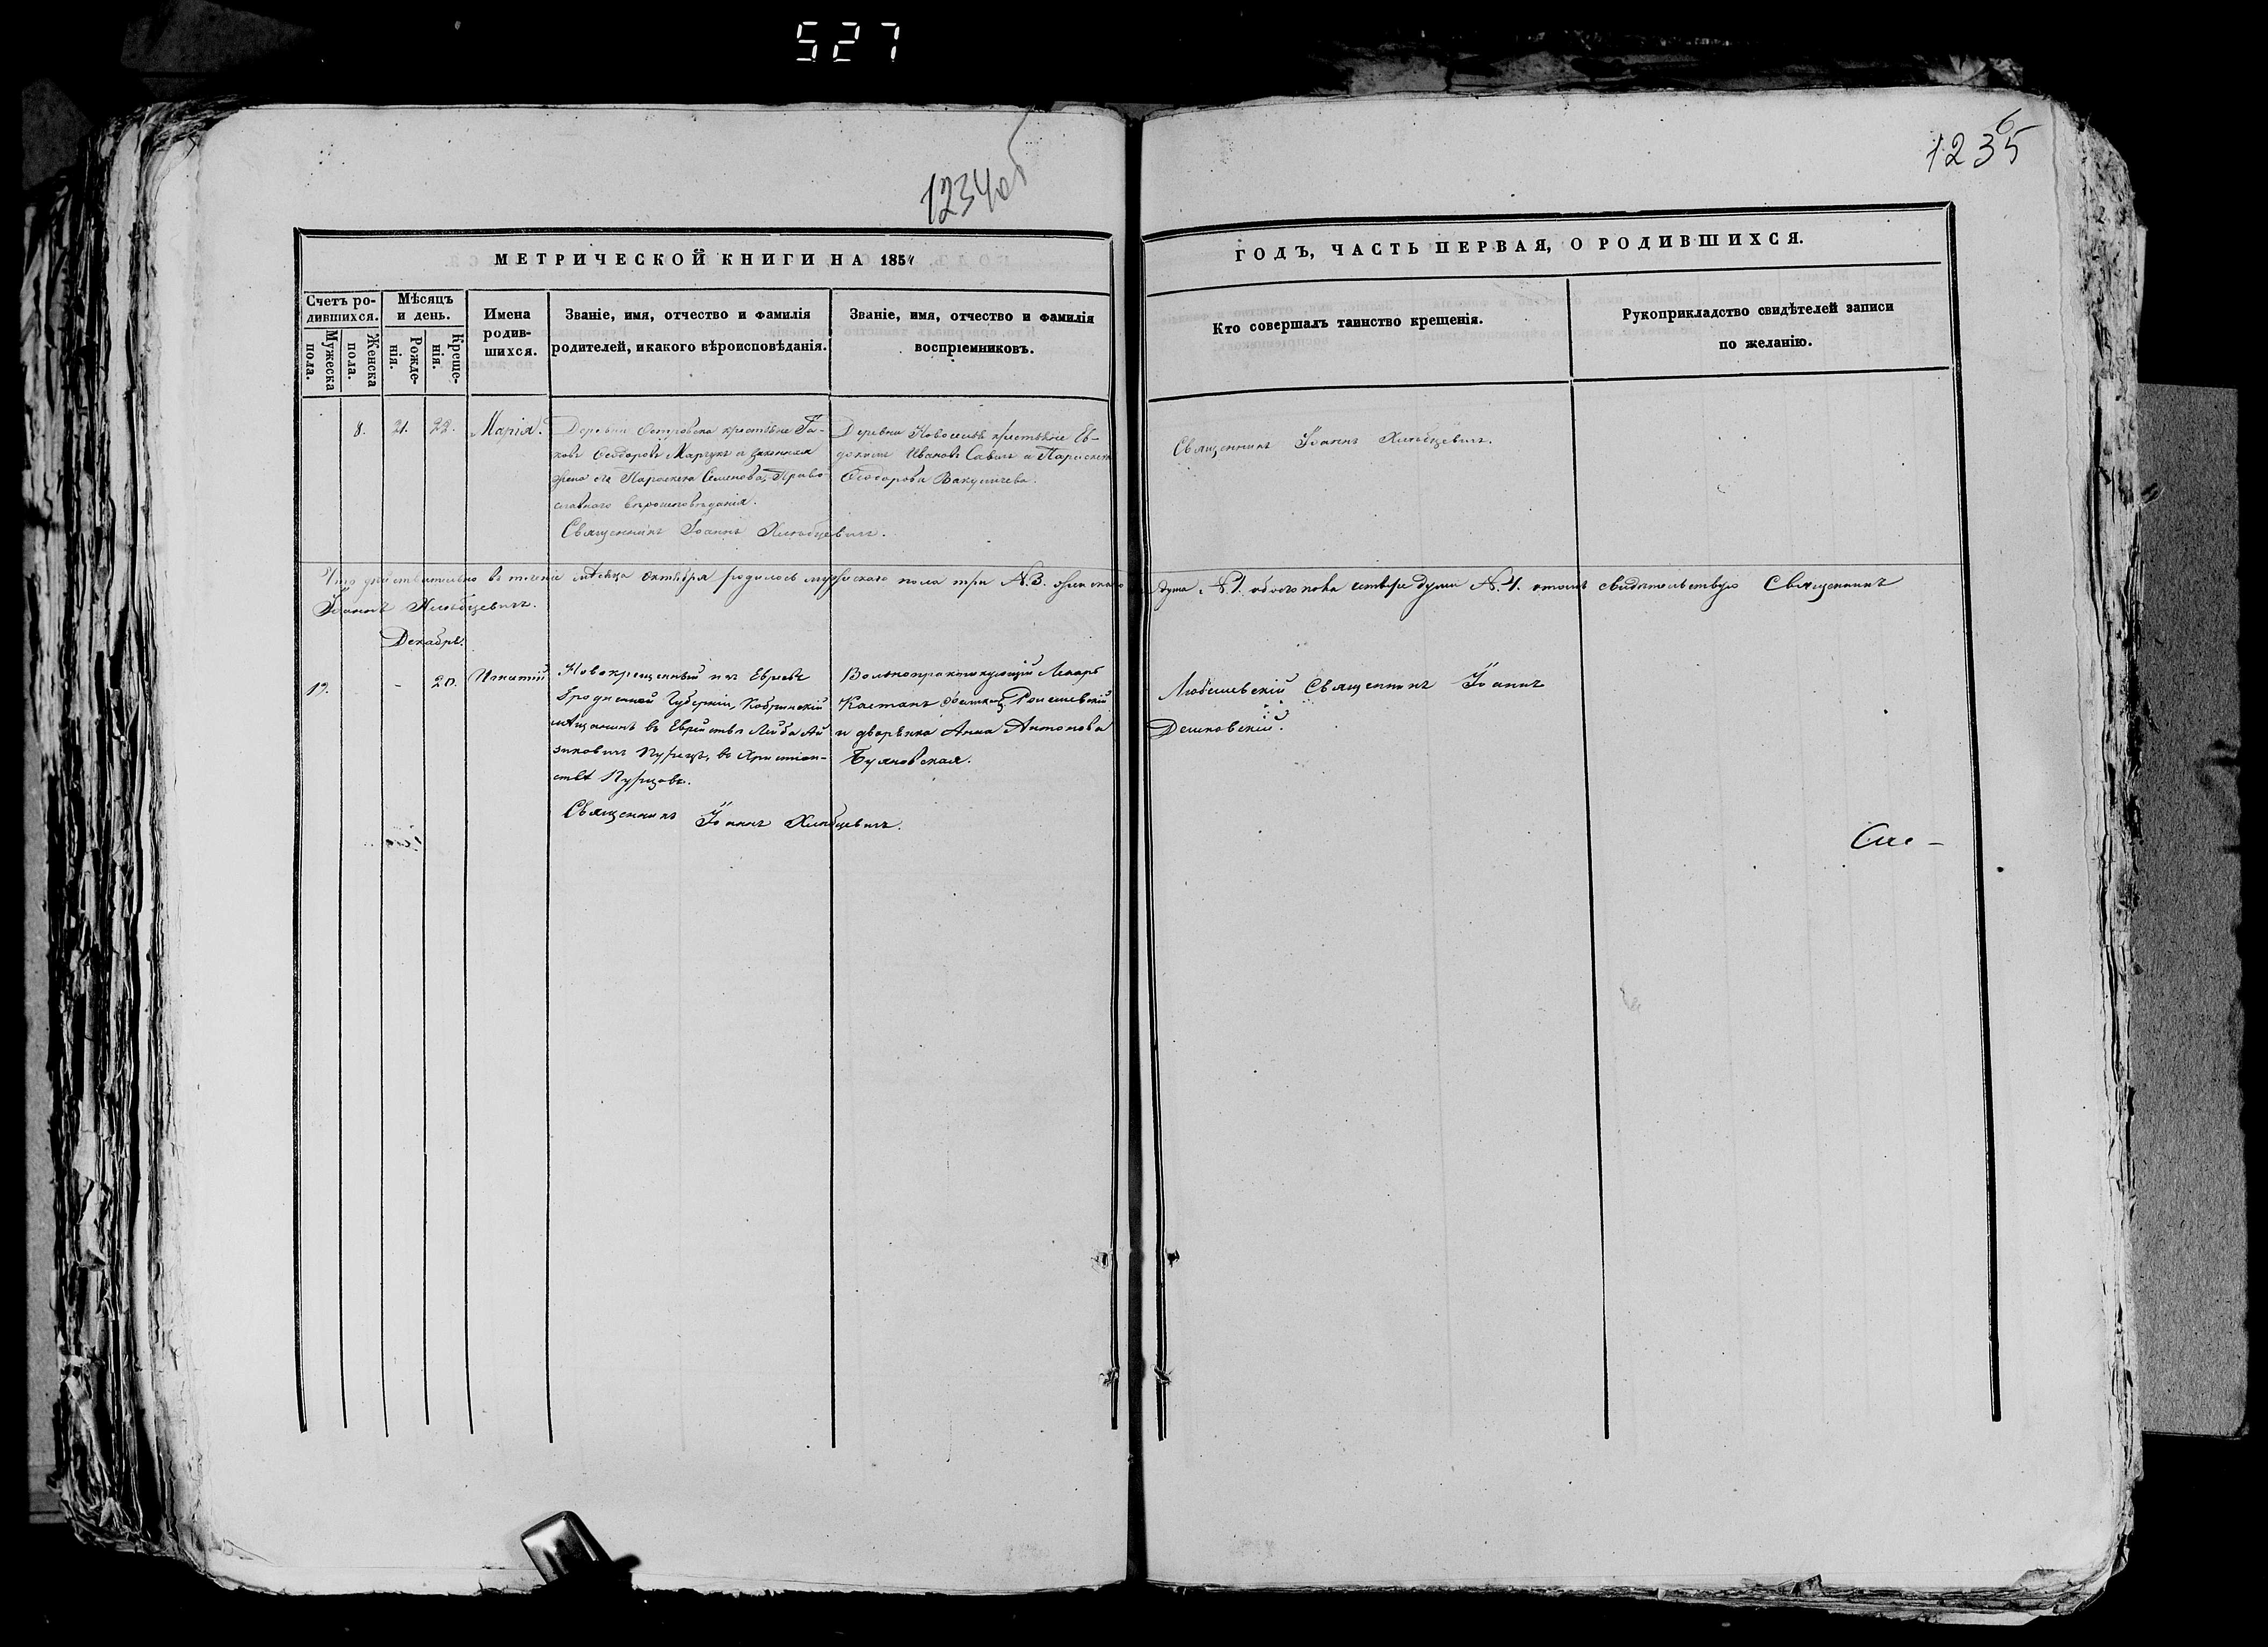 527
1234об
1235
6
МЕТРИЧЕСКОЙ КНИГИ НА 1854
ГОДЪ, ЧАСТЬ ПЕРВАЯ, О РОДИВШИХСЯ.
Счетъ ро-
дившихся.
Мужеска
пола.
Женска
пола.
Мѣсяцъ
и день.
Рожде-
нія.
Креще-
нія.
Имена
родив-
шихся.
Званіе, имя, отчество и фамилія
родителей, и какого вѣроисповѣданія.
Званіе, имя, отчество и фамилія
воспріемниковъ.
Кто совершалъ таинство крещенія.
Рукоприкладство свидѣтелей записи
по желанію.
8. 21. 22. Марія.
Деревни Островска крестьяне Іа-
ковъ Ѳеодоровъ Марчукъ и законная
жена его Параскева Семенова, Право-
славнаго вѣроисповѣданія.
Священникъ Іоаннъ Хлѣбцевичъ.
Деревни Новоселокъ крестьяне Ев-
докимъ Ивановъ Савичъ и Параскева
Ѳеодорова Вакуличева.
Священникъ Іоаннъ Хлѣбцевичъ.
Что дѣйствительно въ теченіе мѣсяца Октября родилось мужескаго пола три N. 3. женскаго душа N. 1. обоего пола четыре души N. 4. о томъ свидѣтельствую Священникъ
Іоаннъ Хлѣбцевичъ.
Декабрь.
19. - 20. Игнатій
Новокрещенный изъ Евреевъ
Гродненской Губерніи, Кобринскій
мѣщанинъ въ Еврействѣ Лейба Ай-
зиковичъ Пурицъ, въ Христіан-
ствѣ Пурицовъ.
Священникъ Іоаннъ Хлѣбцевичъ.
Вольнопрактикующій Лекарь
Каетанъ
и дворянка Анна Антонова
Буяновская.
Любешевскій Священникъ Іоаннъ
Дешковскій.